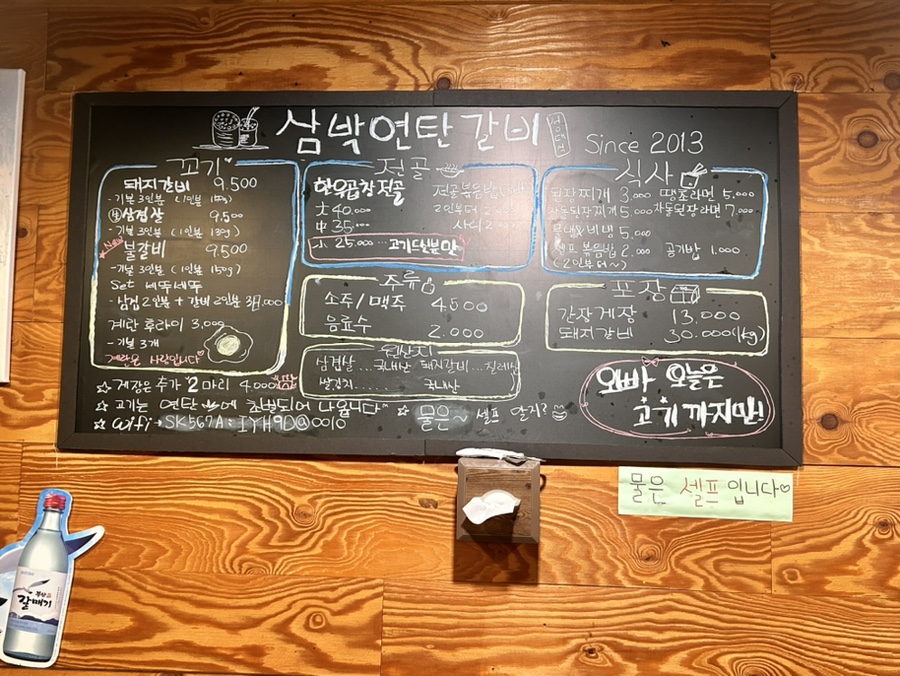 삼박연탄갈비
Since 2013
꼬기
돼지갈비 9.500
-기본 3인분 (1인분
生삼겹살 9.500
-기본 3인분 (1인분 130g)
New
불갈비 9.500
-기본 3인분 (1인분 150g)
Set 네뚜네뚜
-삼겹 2인분 + 갈비 2인분
계란 후라이 3,000
-기본 3개
계란은 사랑입니다
전골
한우곱창전골
大 40.000
中 35.000
小 25.000 ... 고기단분만
전골볶음밥
2인부터
사리
식사
된장찌개 3.000 땡초라면 5.000
차돌된장찌개 5.000 차돌된장라면 7.000
5.000
셀프 볶음밥 2.000 공기밥 1.000
(2인부터~)
주류
소주/맥주 4500
음료수 2.000
원산지
삼겹살...국내산 돼지갈비...칠레산
쌀김치...... 국내산
포장
간장게장 13.000
돼지갈비 30.000(1kg)
오빠 오늘은
고기까지만!
☆ 게장은 추가 2마리 4.000
☆ 고기는 연탄에 초벌되어 나옵니다
☆ 물은~ 셀프 알지?
☆ Wifi → SK567A : IYH9D@0010
물은 셀프입니다♡
부산
갈매기